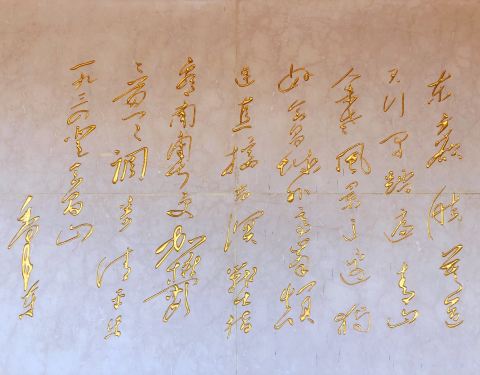 东方欲晓莫道
君行早踏遍青山
人未老風景这边独
好会昌城外高峯颠
连直接东溟戰士指
看南粤更加鬱
々葱々调寄清平乐
一九三四登会昌山
毛泽东